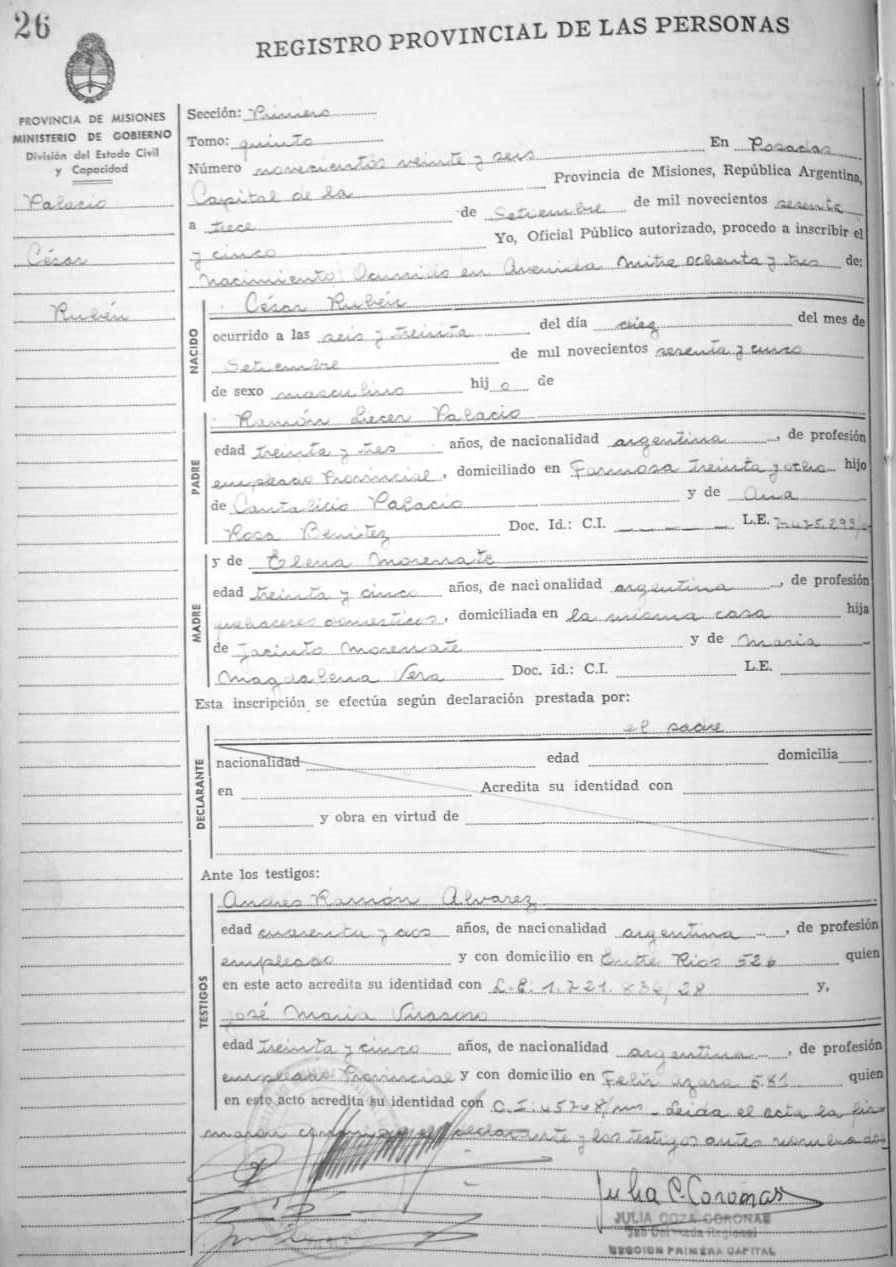 26
REGISTRO PROVINCIAL DE LAS PERSONAS
PROVINCIA DE MISIONES
MINISTERIO DE GOBIERNO
División del Estado Civil
y Capacidad
Palacio
César
Rubén
Sección: Primera
Tomo: quinto
Número novecientos veinte y seis En Posadas
Capital de la Provincia de Misiones, República Argentina,
a trece de Setiembre de mil novecientos sesenta
y cinco Yo, Oficial Público autorizado, procedo a inscribir el
nacimiento Ocurrido en Avenida Mitre ochenta y tres de:
NACIDO
César Rubén
ocurrido a las seis y treinta del día diez del mes de
Setiembre de mil novecientos sesenta y cinco
de sexo masculino hijo de
PADRE
Ramón Palacio
edad treinta y tres años, de nacionalidad argentina, de profesión
empleado Provincial, domiciliado en Formosa treinta y ocho hijo
de Cantalicio Palacio y de Ana
Rosa Benitez Doc. Id.: C.I. L.E.
MADRE
y de Elena
edad treinta y cinco años, de nacionalidad argentina, de profesión
quehaceres domesticos, domiciliada en la misma casa hija
de Jacinto y de Maria
Magdalena Vera Doc. id.: C.I. L.E.
Esta inscripción se efectúa según declaración prestada por:
el padre
DECLARANTE
nacionalidad edad domicilia
en Acredita su identidad con
y obra en virtud de
Ante los testigos:
TESTIGOS
Andres Ramón Alvarez
edad cuarenta y dos años, de nacionalidad argentina, de profesión
empleado y con domicilio en Entre Rios 526 quien
en este acto acredita su identidad con L.E. y,
José Maria
edad treinta y cinco años, de nacionalidad argentina, de profesión
empleado Provincial y con domicilio en Felix Azara 581 quien
en este acto acredita su identidad con C.I. Leida el acta la fir
maron el declarante y los testigos antes nombrados
Julia C. Coronas
JULIA COZA CORONAS
SECCION PRIMERA CAPITAL